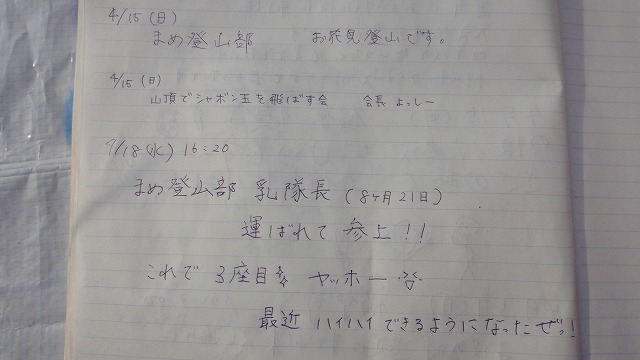 4/15 (日)
まめ登山部 お花見登山です。
4/15 (日)
山頂でシャボン玉を飛ばす会 会長 よっしー
4/18(水) 16:20
まめ登山部 乳隊長 (8ヶ月21日)
運ばれて 参上!!
これで 3座目 ヤッホー
最近 ハイハイ できるように なったぜっ!